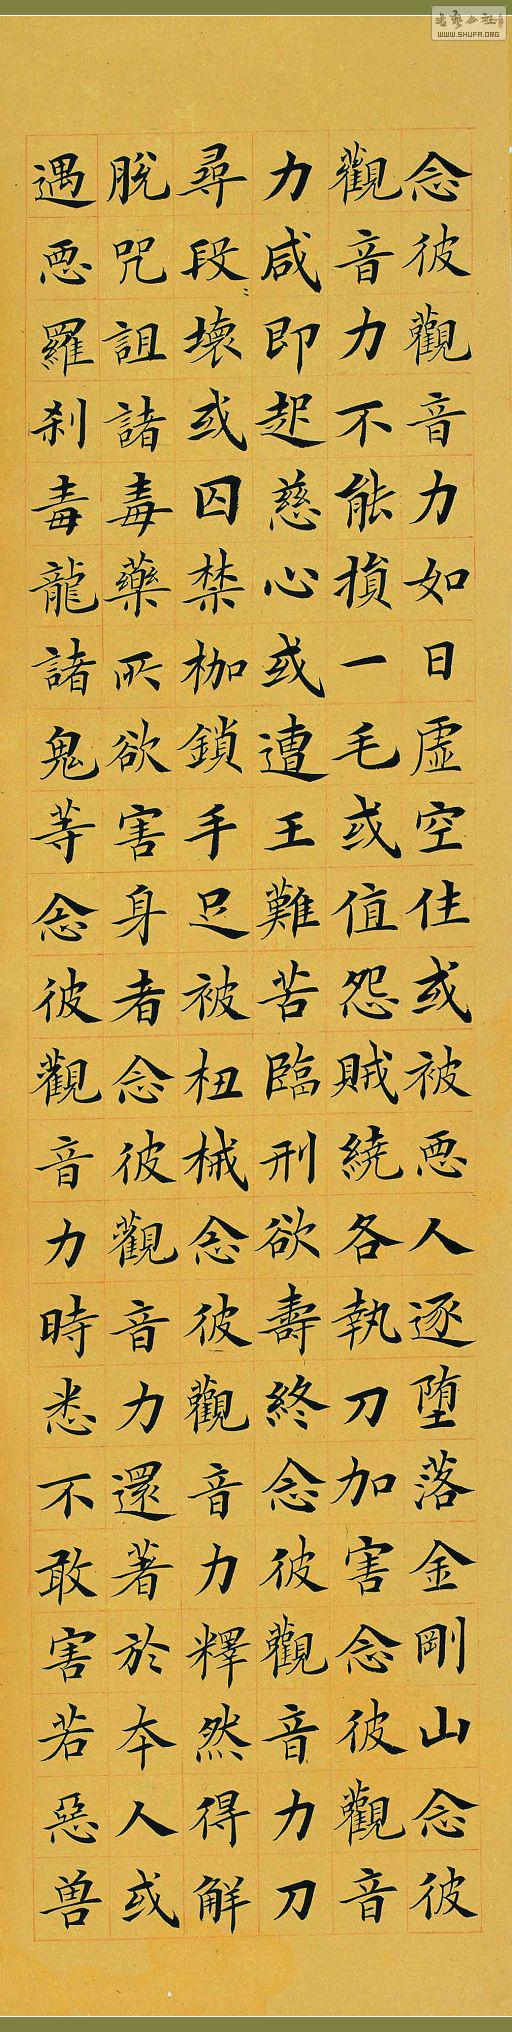 念彼觀音力如日虛空住或被悪人逐堕落金剛山念彼
觀音力不能損一毛或值怨賊繞各執刀加害念彼觀音
力咸即起慈心或遭王難苦臨刑欲壽終念彼觀音力刀
尋段〻壞或囚禁枷鎖手足被杻械念彼觀音力釋然得解
脫咒詛諸毒藥所欲害身者念彼觀音力還著於本人或
遇悪羅刹毒龍諸鬼等念彼觀音力時悉不敢害若惡兽
WWW.SHUFA.ORG